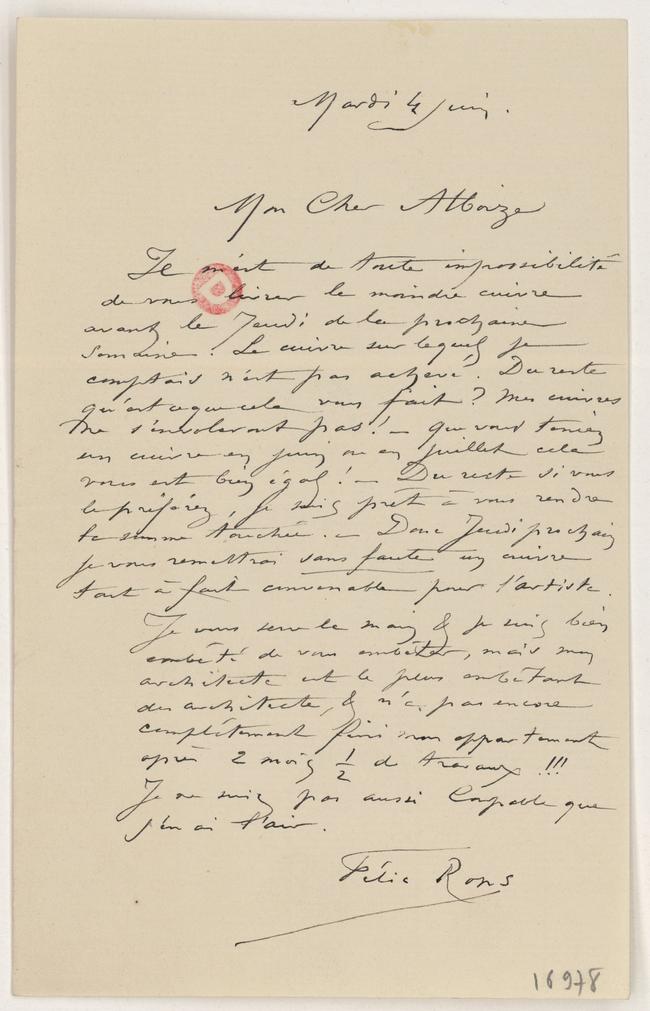 Mardi 4 Juin.
Mon Cher Alboize
Il m'est de toute impossibilité
de vous livrer le moindre cuivre
avant le Jeudi de la prochaine
semaine. Le cuivre sur lequel je
comptais n'est pas achevé. Du reste
qu'est ce que cela vous fait? Mes cuivres
ne s'envoleront pas! – que vous teniez
un cuivre en juin ou en juillet cela
vous est bien égal! – Du reste si vous
le préférez, je suis prêt à vous rendre
la somme touchée. – Donc Jeudi prochain
je vous remettrai sans faute un cuivre
tout à fait convenable pour l'artiste.
Je vous serre la main & je suis bien
embêté de vous embêter, mais mon
architecte est le plus embêtant
des architecte, & n'a pas encore
complètement fini mon appartement
après 2 mois 1/2 de travaux !!!
Je ne suis pas aussi Coupable que
j'en ai l'air.
Félic Rops
16978